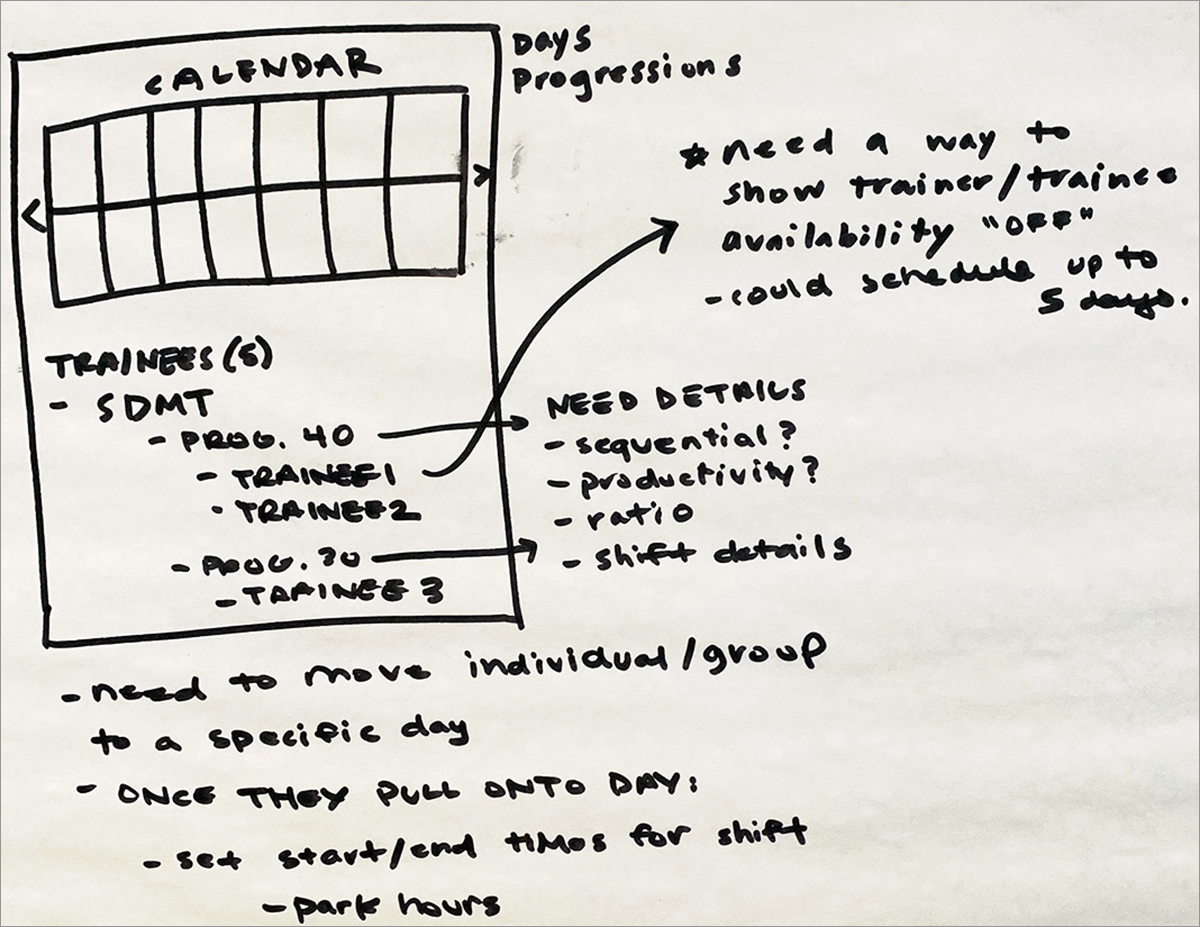 CALENDAR
Days
Progressions
<
>
* need a way to
show trainer/trainee
availability "OFF"
- could schedule up to
5 days.
TRAINEES (5)
- SDMT
- PROG. 40
- TRAINEE 1
- TRAINEE 2
- PROG. 30
- TRAINEE 3
NEED DETAILS
- sequential?
- productivity?
- ratio
- shift details
- need to move individual/group
to a specific day
- ONCE THEY PULL ONTO DAY:
- set start/end times for shift
- park hours